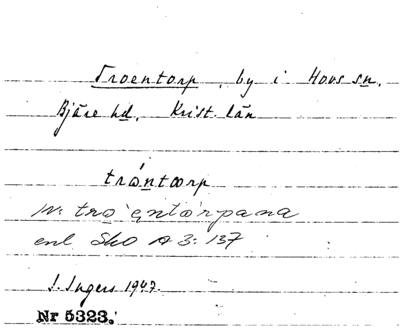 Troentorp, by i Hovs sn.
Bjäre hd. Krist. län
tróntorp
enl Sko A 3: 137
I. Ingers 1947.
Nr 5323.